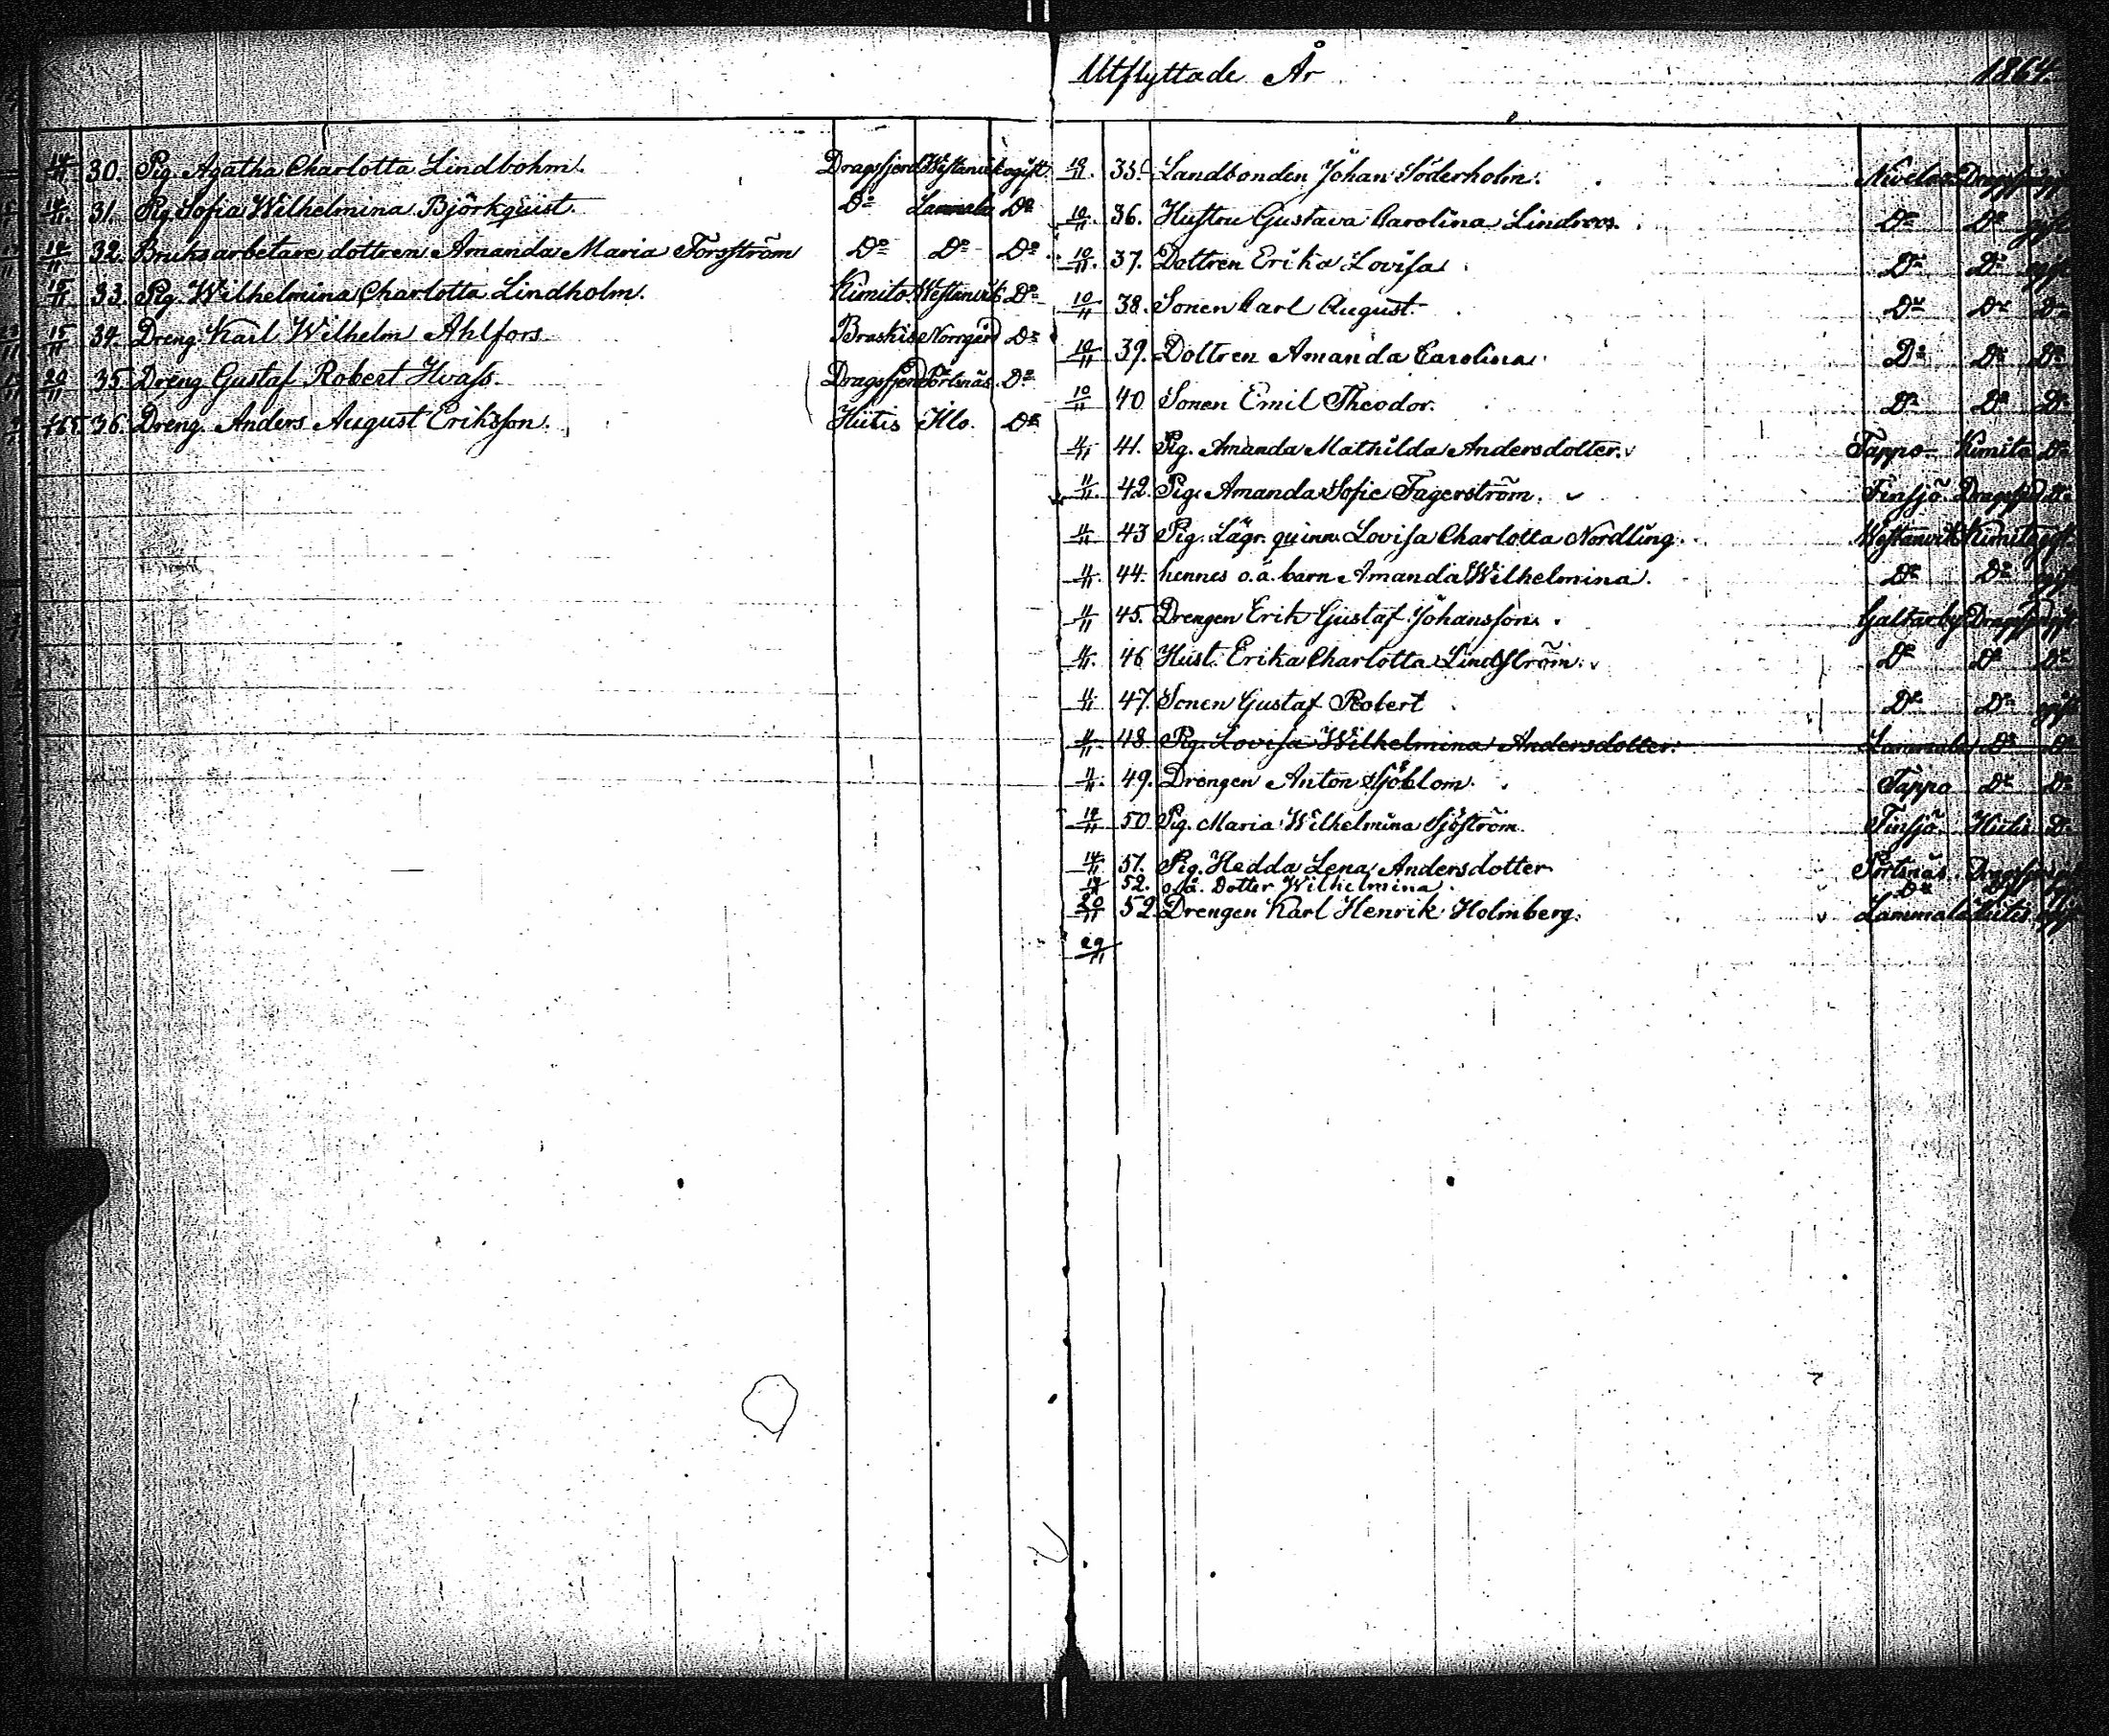 14/11 30. Pig. Agatha Charlotta Lindbohm. Dragsfjerd Westanvik ogift
14/11 31. Pig. Sofia Wilhelmina Björkquist. Do Lammala Do
14/11 32. Bruksarbetare dottren Amanda Maria Forsström Do Do Do
15/11 33. Pig. Wilhelmina Charlotta Lindholm. Kimito Westanvik Do
15/11 34. Dreng Karl Wilhelm Ahlfors Norrgård Do
20/11 35. Dreng Gustaf Robert Hvass. Dragsfjerd Pörtsnäs Do
36. Dreng. Anders August Eriksson. Hitis Illo. Do
Utflyttade År 1864.
10/11 35. Landbonden Johan Söderholm. Nivelax Dragsf
10/11 36. Hustru Gustava Carolina Lindroos. Do Do gift
10/11 37. Dottren Erika Lovisa Do Do ogift
10/11 38. Sonen Carl August. Do Do Do
10/11 39. Dottren Amanda Carolina. Do Do Do
10/11 40 Sonen Emil Theodor. Do Do Do
11/11 41. Pig. Amanda Mathilda Andersdotter. Tappo Kimito Do
11/11 42. Pig. Amanda Sofie Fagerström. Finsjö Dragsfjerd Do
11/11 43 Pig. Lägr. quinn. Lovisa Charlotta Nordling. Westanvik Kimito
11/11 44. hennes o. ä. barn Amanda Wilhelmina. Do Do ogift
11/11 45. Drengen Erik Gustaf Johansson. Galtarby Dragsfj gift
11/11 46 Hust. Erika Charlotta Lindström. Do Do Do
11/11 47. Sonen Gustaf Robert Do Do ogift
11/11 48. Pig. Lovisa Wilhelmina Andersdotter. Lammala Do Do
11/11 49. Drengen Anton Sjöblom. Tappo Do Do
14/11 50 Pig. Maria Wilhelmina Sjöström. Finsjö Hitis Do
14/11 51. Pig. Hedda Lena Andersdotter Pörtsnäs Dragsfj
14/11 52. o. ä. Dotter Wilhelmina. Do Do
20/11 52 Drengen Karl Henrik Holmberg. Lammala Hitis ogift
29/11